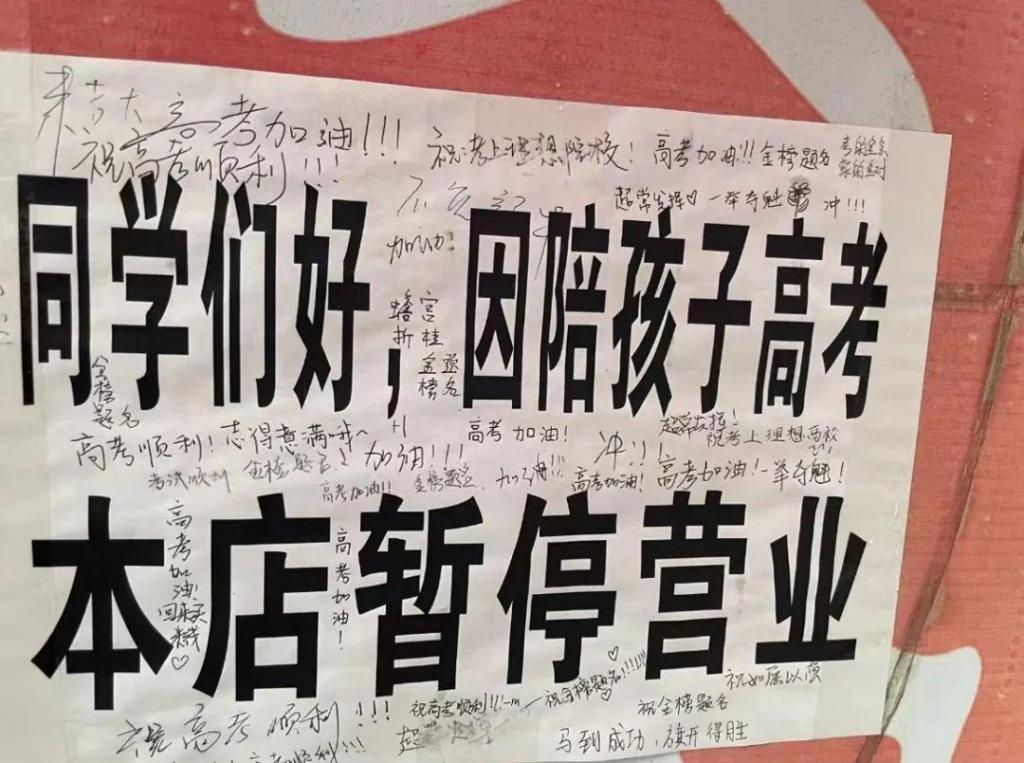 高考加油!!!
祝高考顺利!!!
祝:考上理想院校!
高考加油!!!
金榜题名
考的全会
蒙的全对
超常发挥♡
一举夺魁
冲!!!
加油!
同学们好,因陪孩子高考
蟾宫
折桂
金榜题名
金榜题名
高考顺利!
志得意满
+1
高考加油!
冲!!!
超常发挥!
祝考上理想高校
考试顺利
加油!!!
高考加油!!
加油!!!
高考加油!
高考加油!一举夺魁!
本店暂停营业
高考加油!
高考加油!
祝高考顺利!!!
祝高考顺利!!!
祝金榜题名!!!!!!
祝如愿以偿
祝金榜题名
马到成功,旗开得胜
高考顺利!!!